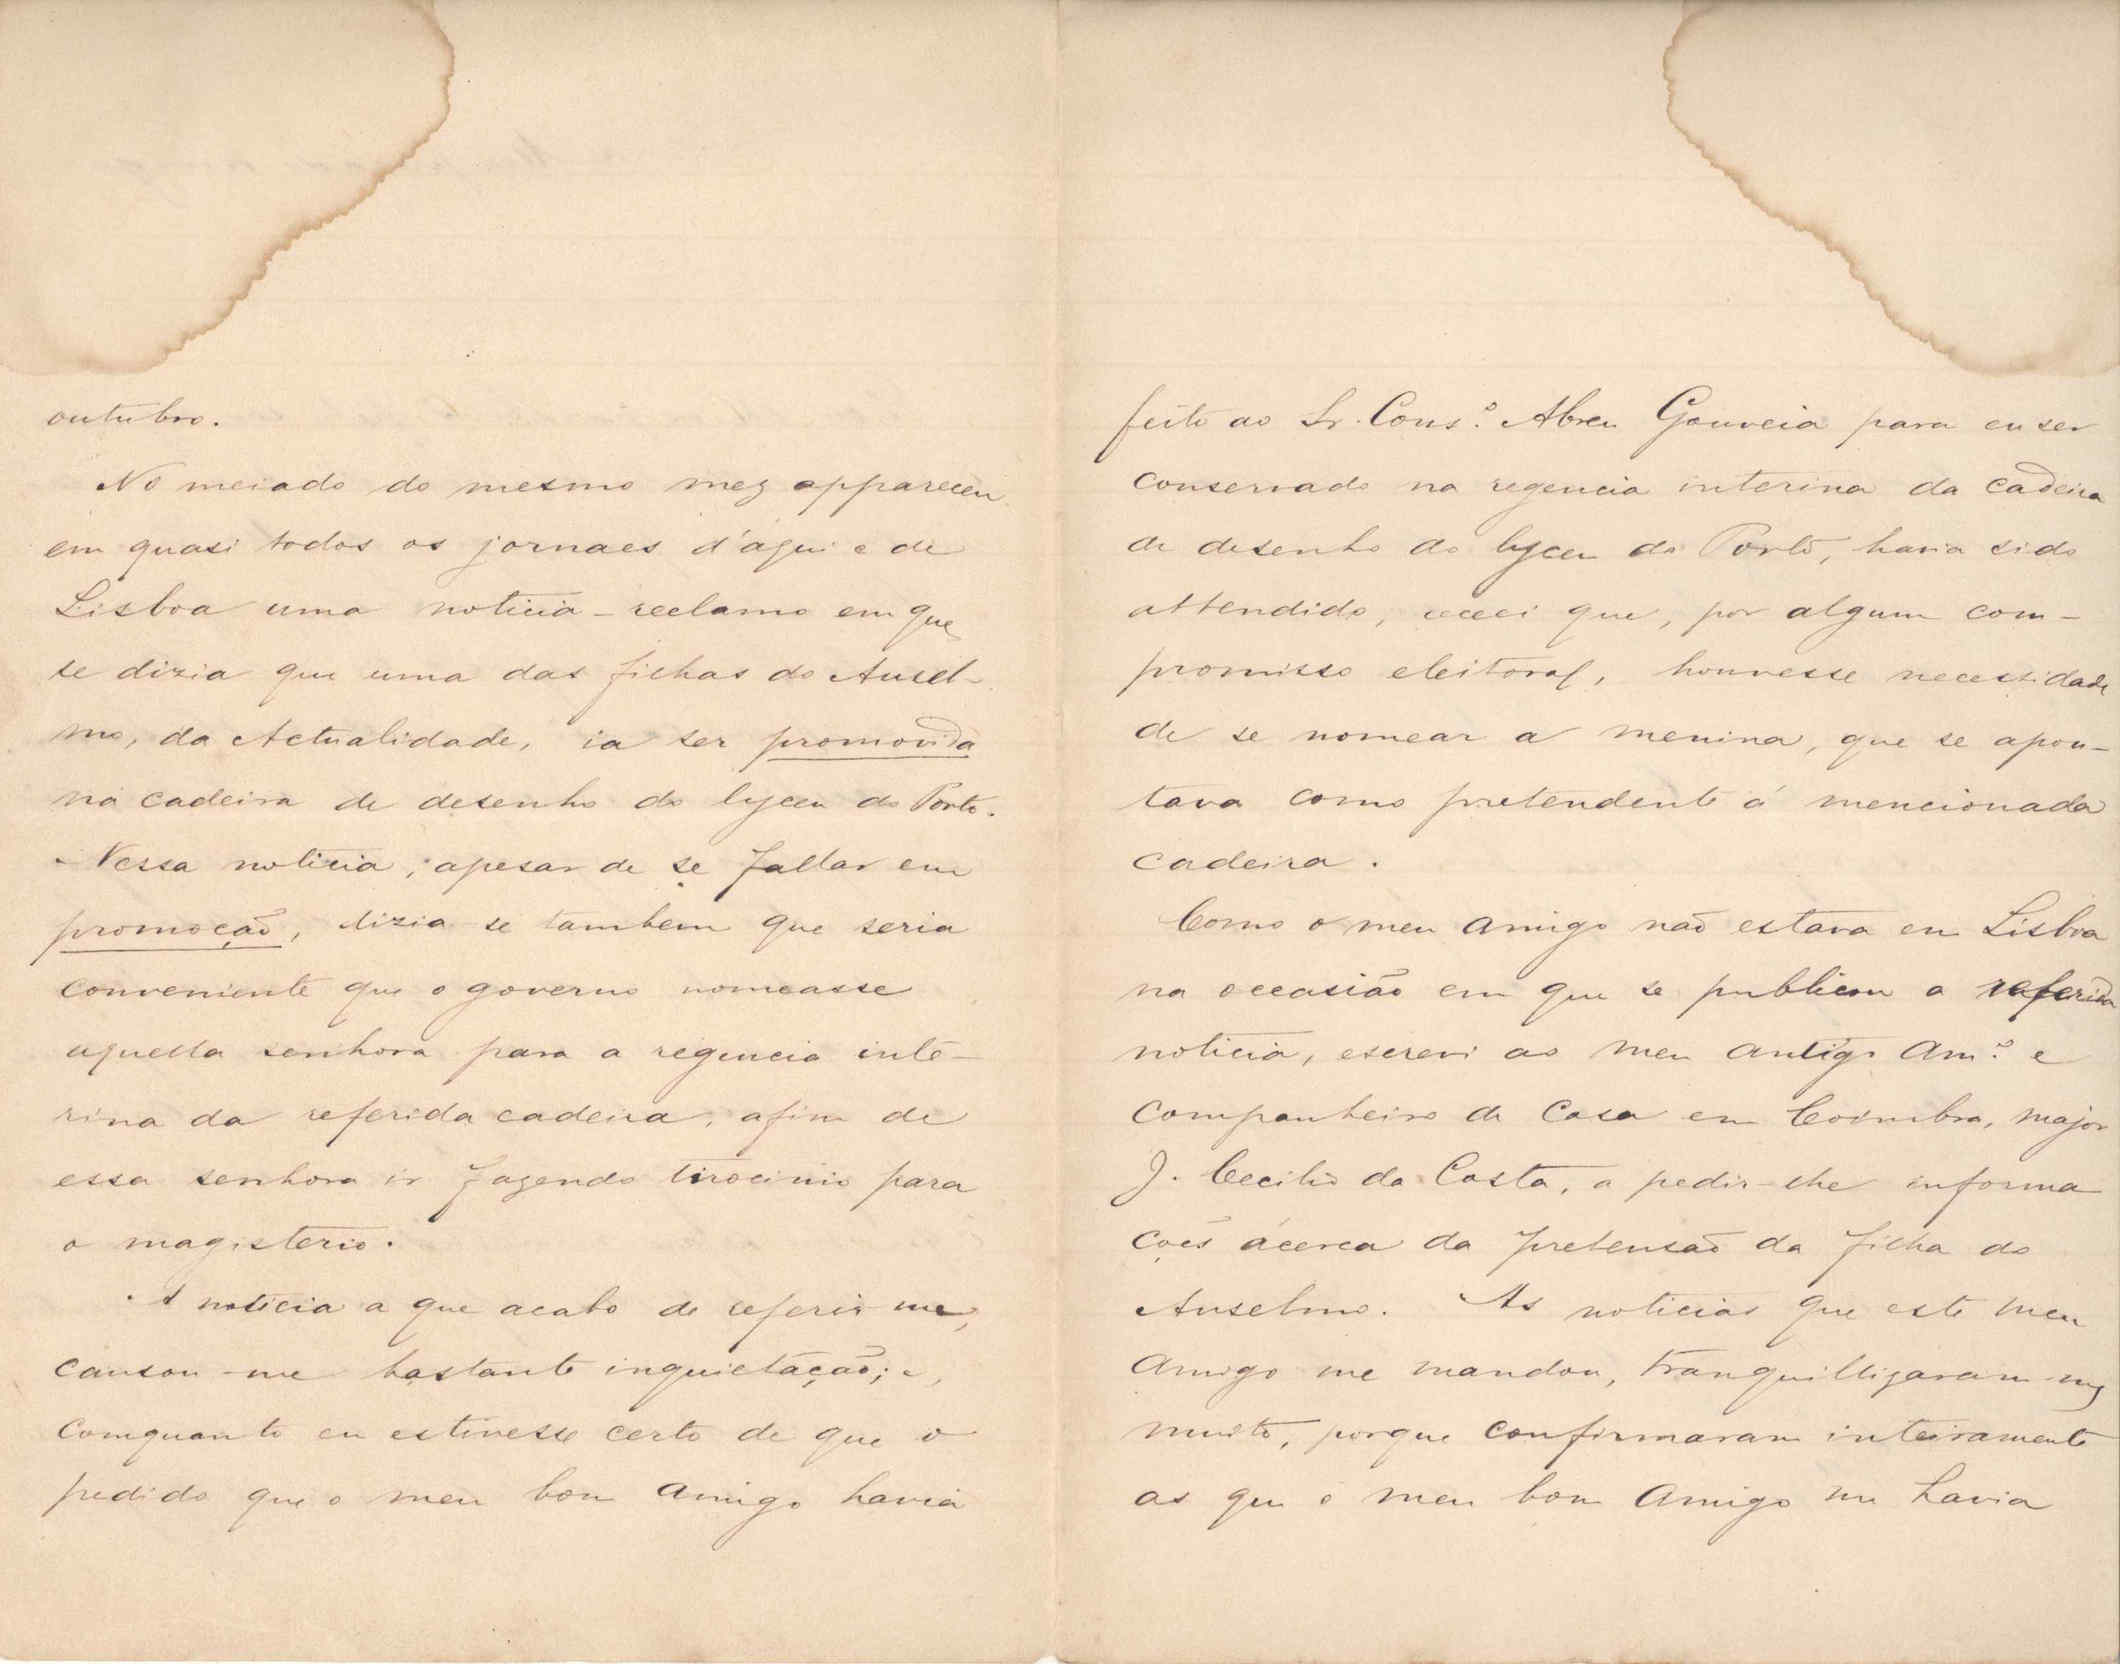 outubro.
No meiado do mesmo mez appareceu
em quasi todos os jornaes d'aqui e de
Lisboa uma noticia-reclamo em que
se dizia que uma das filhas do Ansel-
mo, da Actualidade, ia ser promovida
na cadeira de desenho do lyceu do Porto.
Nessa noticia, apesar de se fallar em
promoção, dizia-se tambem que seria
conveniente que o governo nomeasse
aquella senhora para a regencia inte-
rina da referida cadeira, afim de
essa senhora ir fazendo tirocinio para
o magisterio.
A noticia a que acabo de referir-me,
causou-me bastante inquietação; e,
comquanto eu estivesse certo de que o
pedido que o meu bom amigo havia
feito ao Sr. Cons.º Abreu Gouveia para eu ser
conservado na regencia interina da cadeira
de desenho do lyceu do Porto, havia sido
attendido, receei que, por algum com-
promisso eleitoral, houvesse necessidade
de se nomear a menina, que se apon-
tava como pretendente á mencionada
cadeira.
Como o meu amigo não estava em Lisboa
na occasião em que se publicou a referida
noticia, escrevi ao meu antigo Am.º e
companheiro de casa em Coimbra, major
J. Cecilio da Costa, a pedir-lhe informa
ções ácerca da pretensão da filha do
Anselmo. As noticias que este meu
amigo me mandou, tranquillizaram-me
muito, porque confirmaram inteiramente
as que o meu bom amigo me havia